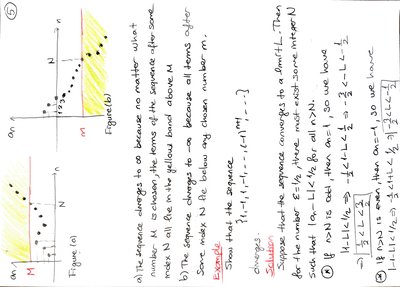 5
an
M
N
n
Figure (a)
an
n
N
123
M
Figure (b)
a) The sequence diverges to ∞ because no matter what
number M is chosen, the terms of the sequence after some
index N all lie in the yellow band above M
b) The sequence diverges to -∞ because all terms after
some index N lie below any chosen number m.
Example
Show that the sequence
{1, -1, 1, -1, ..., (-1)ⁿ⁺¹, ...}
diverges.
Solution
Suppose that the sequence converges to a limit L. Then
for the number ε=1/2, there must exist some integer N
such that |an-L|<1/2 for all n>N.
* If n>N is odd, then an=1, so we have
|1-L|<1/2 ⇒ -1/2<1-L<1/2 ⇒ -3/2<-L<-1/2
⇒ 1/2<L<3/2
* If n>N is even, then an=-1, so we have
|-1-L|<1/2 ⇒ -1/2<1+L<1/2 ⇒ -3/2<L<-1/2